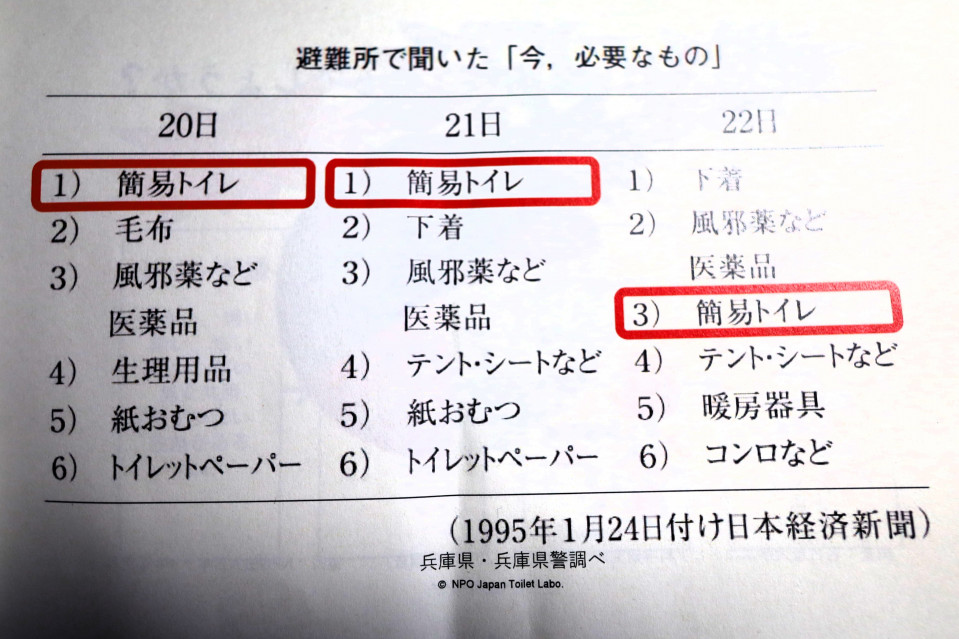 避難所で聞いた「今，必要なもの」
20日 21日 22日
1) 簡易トイレ 1) 簡易トイレ 1) 下着
2) 毛布 2) 下着 2) 風邪薬など
3) 風邪薬など 3) 風邪薬など 医薬品
医薬品 医薬品 3) 簡易トイレ
4) 生理用品 4) テント・シートなど 4) テント・シートなど
5) 紙おむつ 5) 紙おむつ 5) 暖房器具
6) トイレットペーパー 6) トイレットペーパー 6) コンロなど
(1995年1月24日付け日本経済新聞)
兵庫県・兵庫県警調べ
© NPO Japan Toilet Labo.